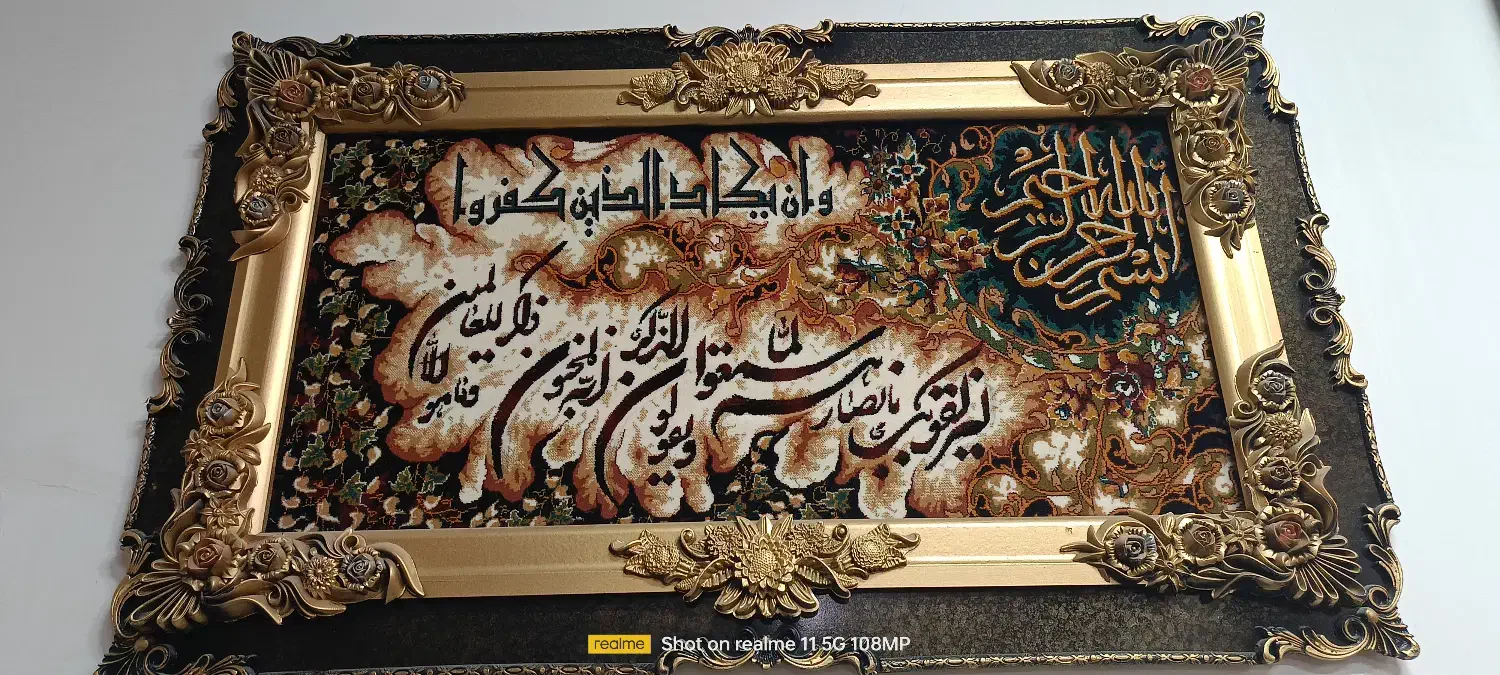 بسم الله الرحمن الرحيم
وان يكاد الذين كفروا
ليزلقونك بأبصارهم لما سمعوا الذكر ويقولون إنه لمجنون
وما هو إلا ذكر للعالمين
realme Shot on realme 11 5G 108MP